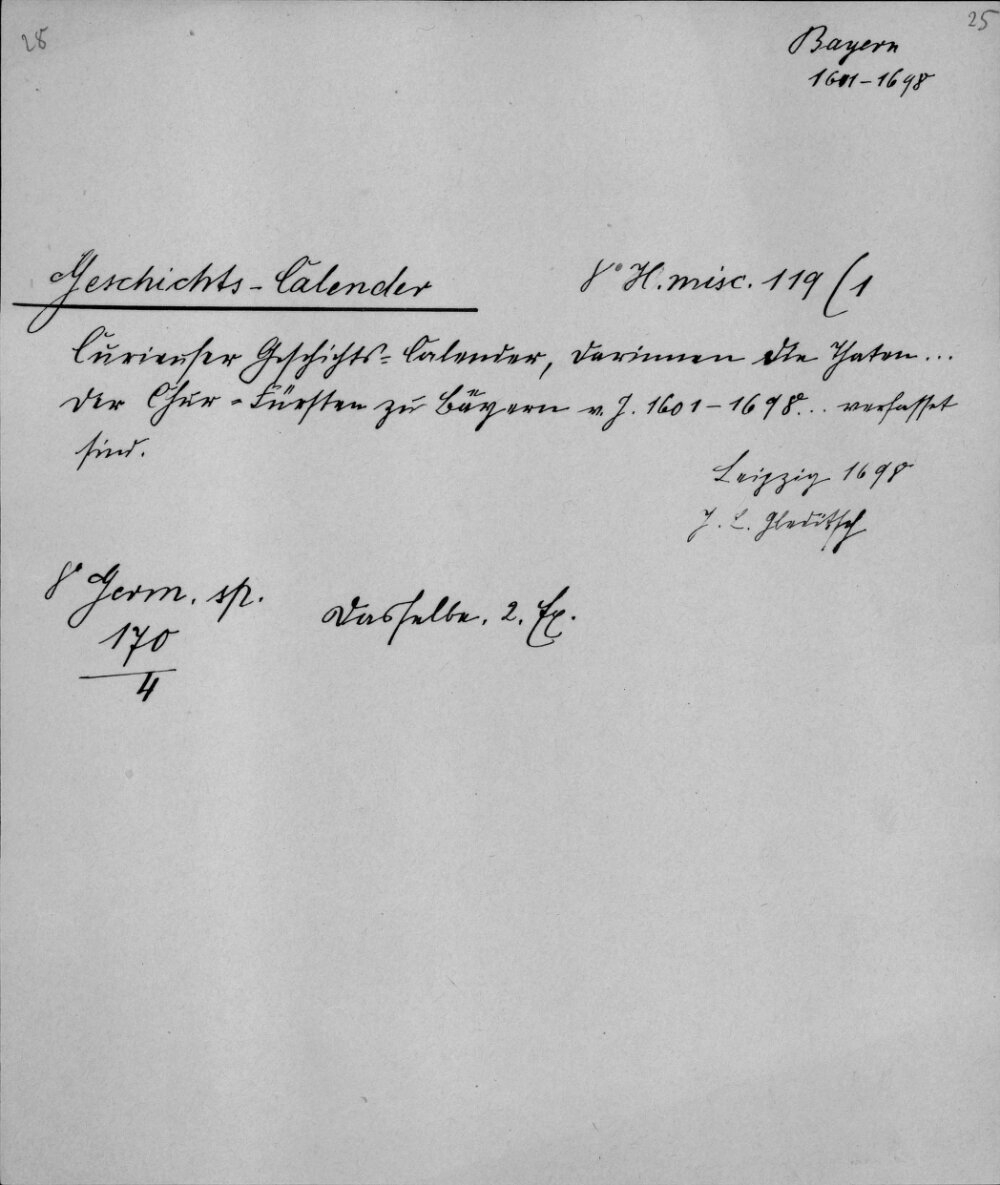 28
25
Bayern
1601-1698
Geschichts-Calender
8° H. misc. 119 (1
Curieuser Geschichts-Calender, darinnen die Thaten...
der Chur-Fürsten zu Bäyern v. J. 1601-1698... verfasset
sind.
Leipzig 1698
J. L. Gleditsch
8° Germ. sp.
170
4
Dasselbe. 2. Ex.